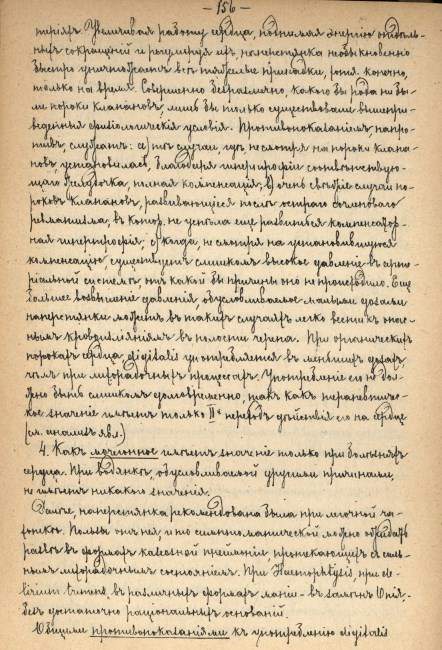 — 156 —
терiяхъ. Увеличивая работу сердца, поднимая энергiю отдѣль-
ныхъ сокращенiй и регулируя ихъ, наперстянка необыкновенно
быстро уничтожаетъ всѣ тяжелые припадки, хотя, конечно,
только на время. Совершенно безразлично, какого бы рода ни бы-
ли пороки клапановъ, лишь бы только существовали вышепри-
веденныя физiологическiя условiя. Противопоказанiемъ, напро-
тивъ, служатъ: а) тѣ случаи, гдѣ, не смотря на пороки клапа-
новъ, установилась, благодаря гипертрофiи соотвѣтствую-
щаго желудочка, полная компенсацiя; b) очень свѣжiе случаи по-
роковъ клапановъ, развивающiеся послѣ остраго сочленовнаго
ревматизма, въ котор. не успѣла еще развиться компенсатор-
ная гипертрофiя; c) когда, не смотря на установившуюся
компенсацiю, существуетъ слишкомъ высокое давленiе въ арте-
рiальной системѣ, отъ какой бы причины оно не происходило. Еще
большее возвышенiе давленiя, обусловливаемое малыми дозами
наперстянки можетъ въ такихъ случаяхъ легко вести къ опас-
нымъ кровоизлiянiямъ въ полости черепа. При органическихъ
порокахъ сердца, digitalis употребляется въ меньшихъ дозахъ,
чѣмъ при лихорадочныхъ процессахъ. Употребленiе его не дол-
жно быть слишкомъ долговременно, такъ какъ терапевтичес-
кое значенiе имѣетъ только IIй перiодъ дѣйствiя его на сердце
(см. анализъ явл.)
4. Какъ мочегонное имѣетъ значенiе только при болѣзняхъ
сердца. При водянкѣ, обусловливаемой другими причинами,
не имѣетъ никакого значенiя.
Далѣе, наперстянка рекомендована была при легочной ча-
хоткѣ. Пользы отъ нея, чисто симптоматической можно ожидать
развѣ въ формахъ казеозной пневмонiи протекающихъ съ силь-
нымъ лихорадочнымъ состоянiемъ. При Haemophtysis, при de-
lirium tremens, въ различныхъ формахъ манiи — въ запоѣ
безъ достаточно рацiональныхъ основанiй.
Общими противопоказанiями къ употребленiю digitalis